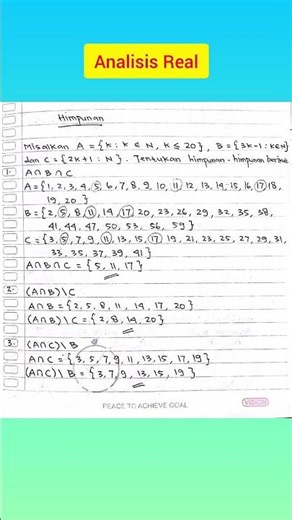 Analisis Real
Himpunan
Misalkan A = {k : k ∈ N, k ≤ 20}, B = {3k-1 : k∈N}
dan C = {2k+1 : N}. Tentukan himpunan-himpunan berikut
1. A∩B∩C
A = {1, 2, 3, 4, 5, 6, 7, 8, 9, 10, 11, 12, 13, 14, 15, 16, 17, 18,
19, 20}
B = {2, 5, 8, 11, 14, 17, 20, 23, 26, 29, 32, 35, 38,
41, 44, 47, 50, 53, 56, 59}
C = {3, 5, 7, 9, 11, 13, 15, 17, 19, 21, 23, 25, 27, 29, 31,
33, 35, 37, 39, 41}
A∩B∩C = {5, 11, 17}
2. (A∩B)\C
A∩B = {2, 5, 8, 11, 14, 17, 20}
(A∩B)\C = {2, 8, 14, 20}
3. (A∩C)\B
A∩C = {3, 5, 7, 9, 11, 13, 15, 17, 19}
(A∩C)\B = {3, 7, 9, 13, 15, 19}
PEACE TO ACHIEVE GOAL
VISION